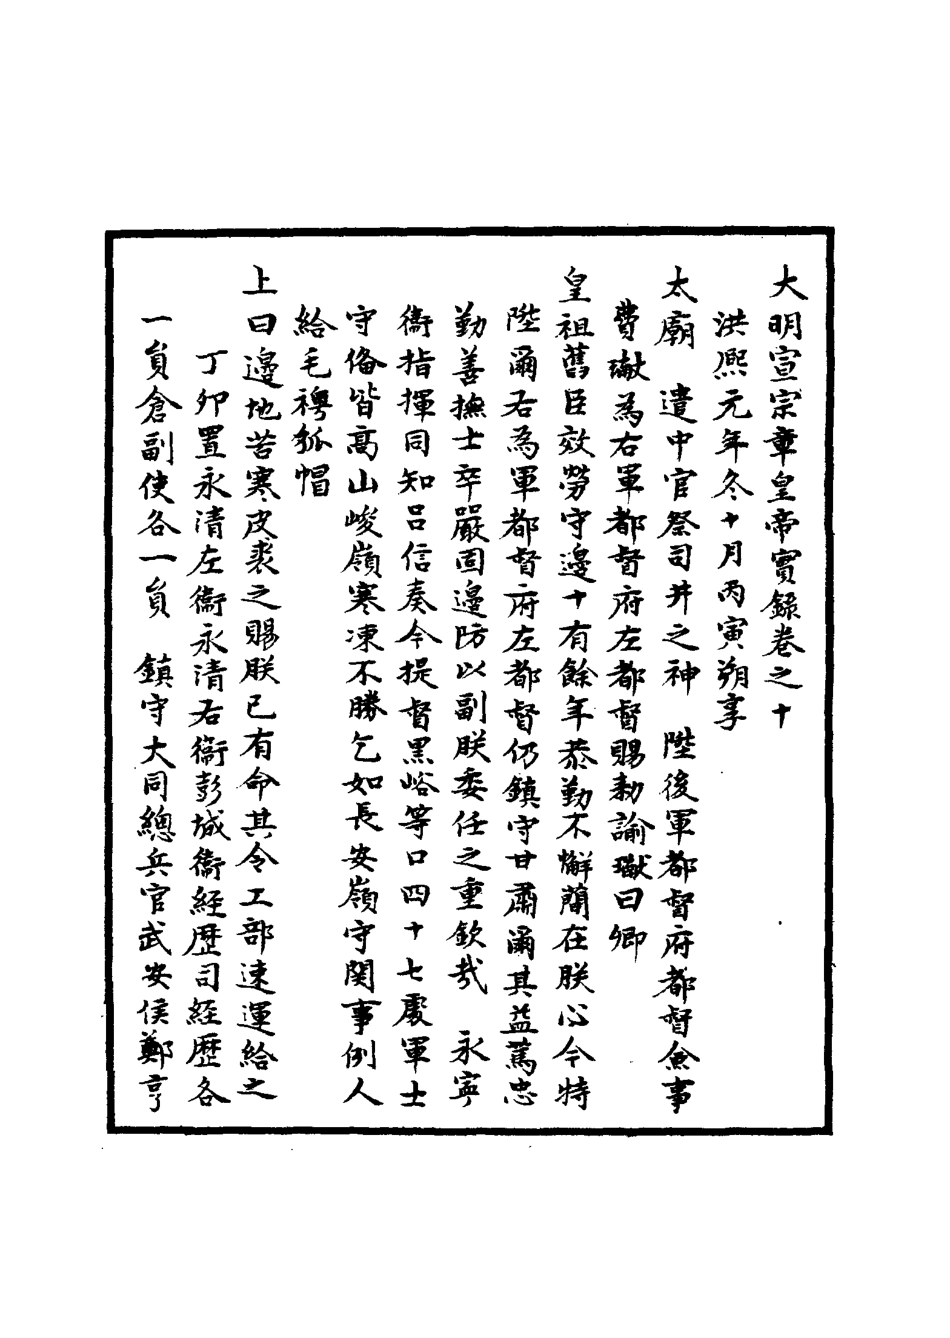 大明宣宗章皇帝實錄卷之十
洪熙元年冬十月丙寅朔享
太廟　遣中官祭司井之神　陞後軍都督府都督僉事
費瓛為右軍都督府左都督賜勅諭瓛曰卿
皇祖舊臣效勞守邊十有餘年恭勤不懈簡在朕心今特
陞爾右為軍都督府左都督仍鎮守甘肅爾其益篤忠
勤善撫士卒嚴固邊防以副朕委任之重欽哉　永寧
衞指揮同知呂信奏今提督黑峪等口四十七處軍士
守俻皆高山峻嶺寒凍不勝乞如長安嶺守関事例人
給毛襖狐帽
上曰邊地苦寒皮裘之賜朕已有命其令工部速運給之
丁卯置永清左衞永清右衞彭城衞經歷司經歷各
一貟倉副使各一貟　鎮守大同總兵官武安侯鄭亨